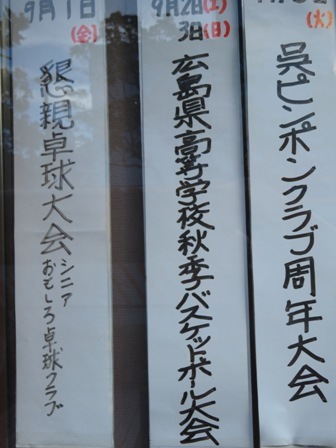 9月1日
(金)
懇親卓球大会
シニア
おもしろ卓球クラブ
9月2日(土)
3日(日)
広島県高等学校秋季バスケットボール大会
(火)
呉ピンポンクラブ周年大会